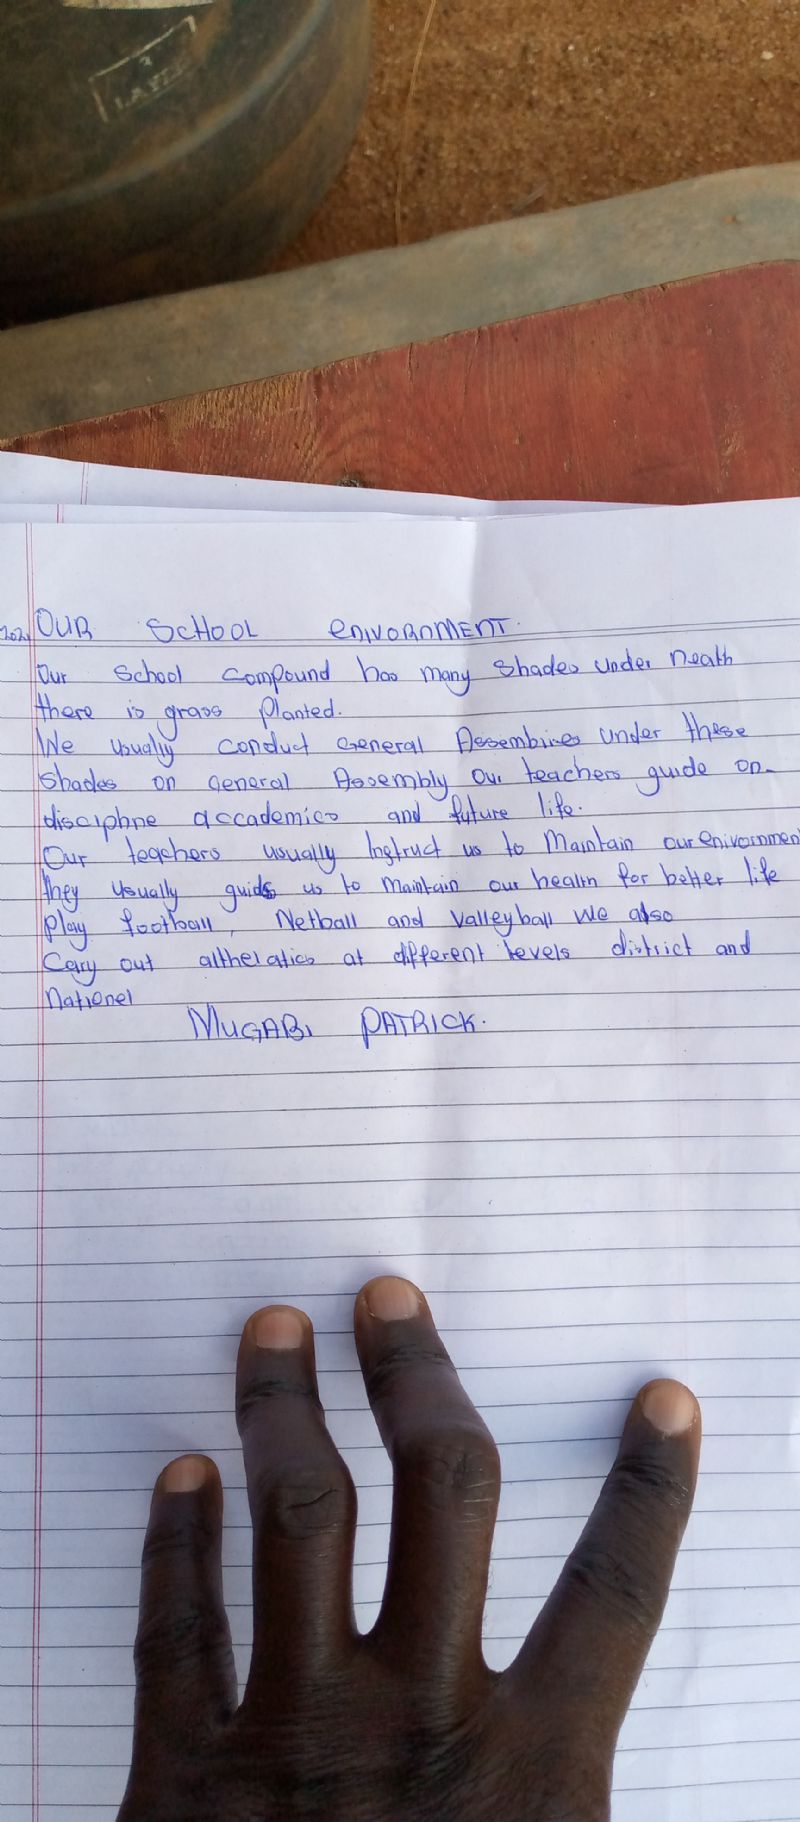 LAYER
2021
OUR SCHOOL ENIVORNMENT.
Our School compound has many Shades under neath
there is grass planted.
We usually conduct General Assembines under these
Shades on General Assembly our teachers guide on
discipline accademics and future life.
Our teachers usually Instruct us to Maintain our enivornment
they usually guids us to maintain our health for better life
Play football, Netball and Valleyball we also
Cary out altheratics at different levels district and
Nationel
MUGABI PATRICK.